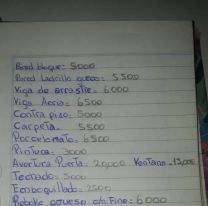 Pared bloque: 5000
Pared Ladrillo grueso: 5500
Viga de arrastre: 6000
Viga Aeria: 6500
Contra piso: 5000
Carpeta: 5500
Porcelanato: 6500
Pintura: 3000
Avertura Puerta: 20000 Ventana: 15000
Techado: 5000
Emboquillado: 2500
Reboke grueso c/n Fino: 6000